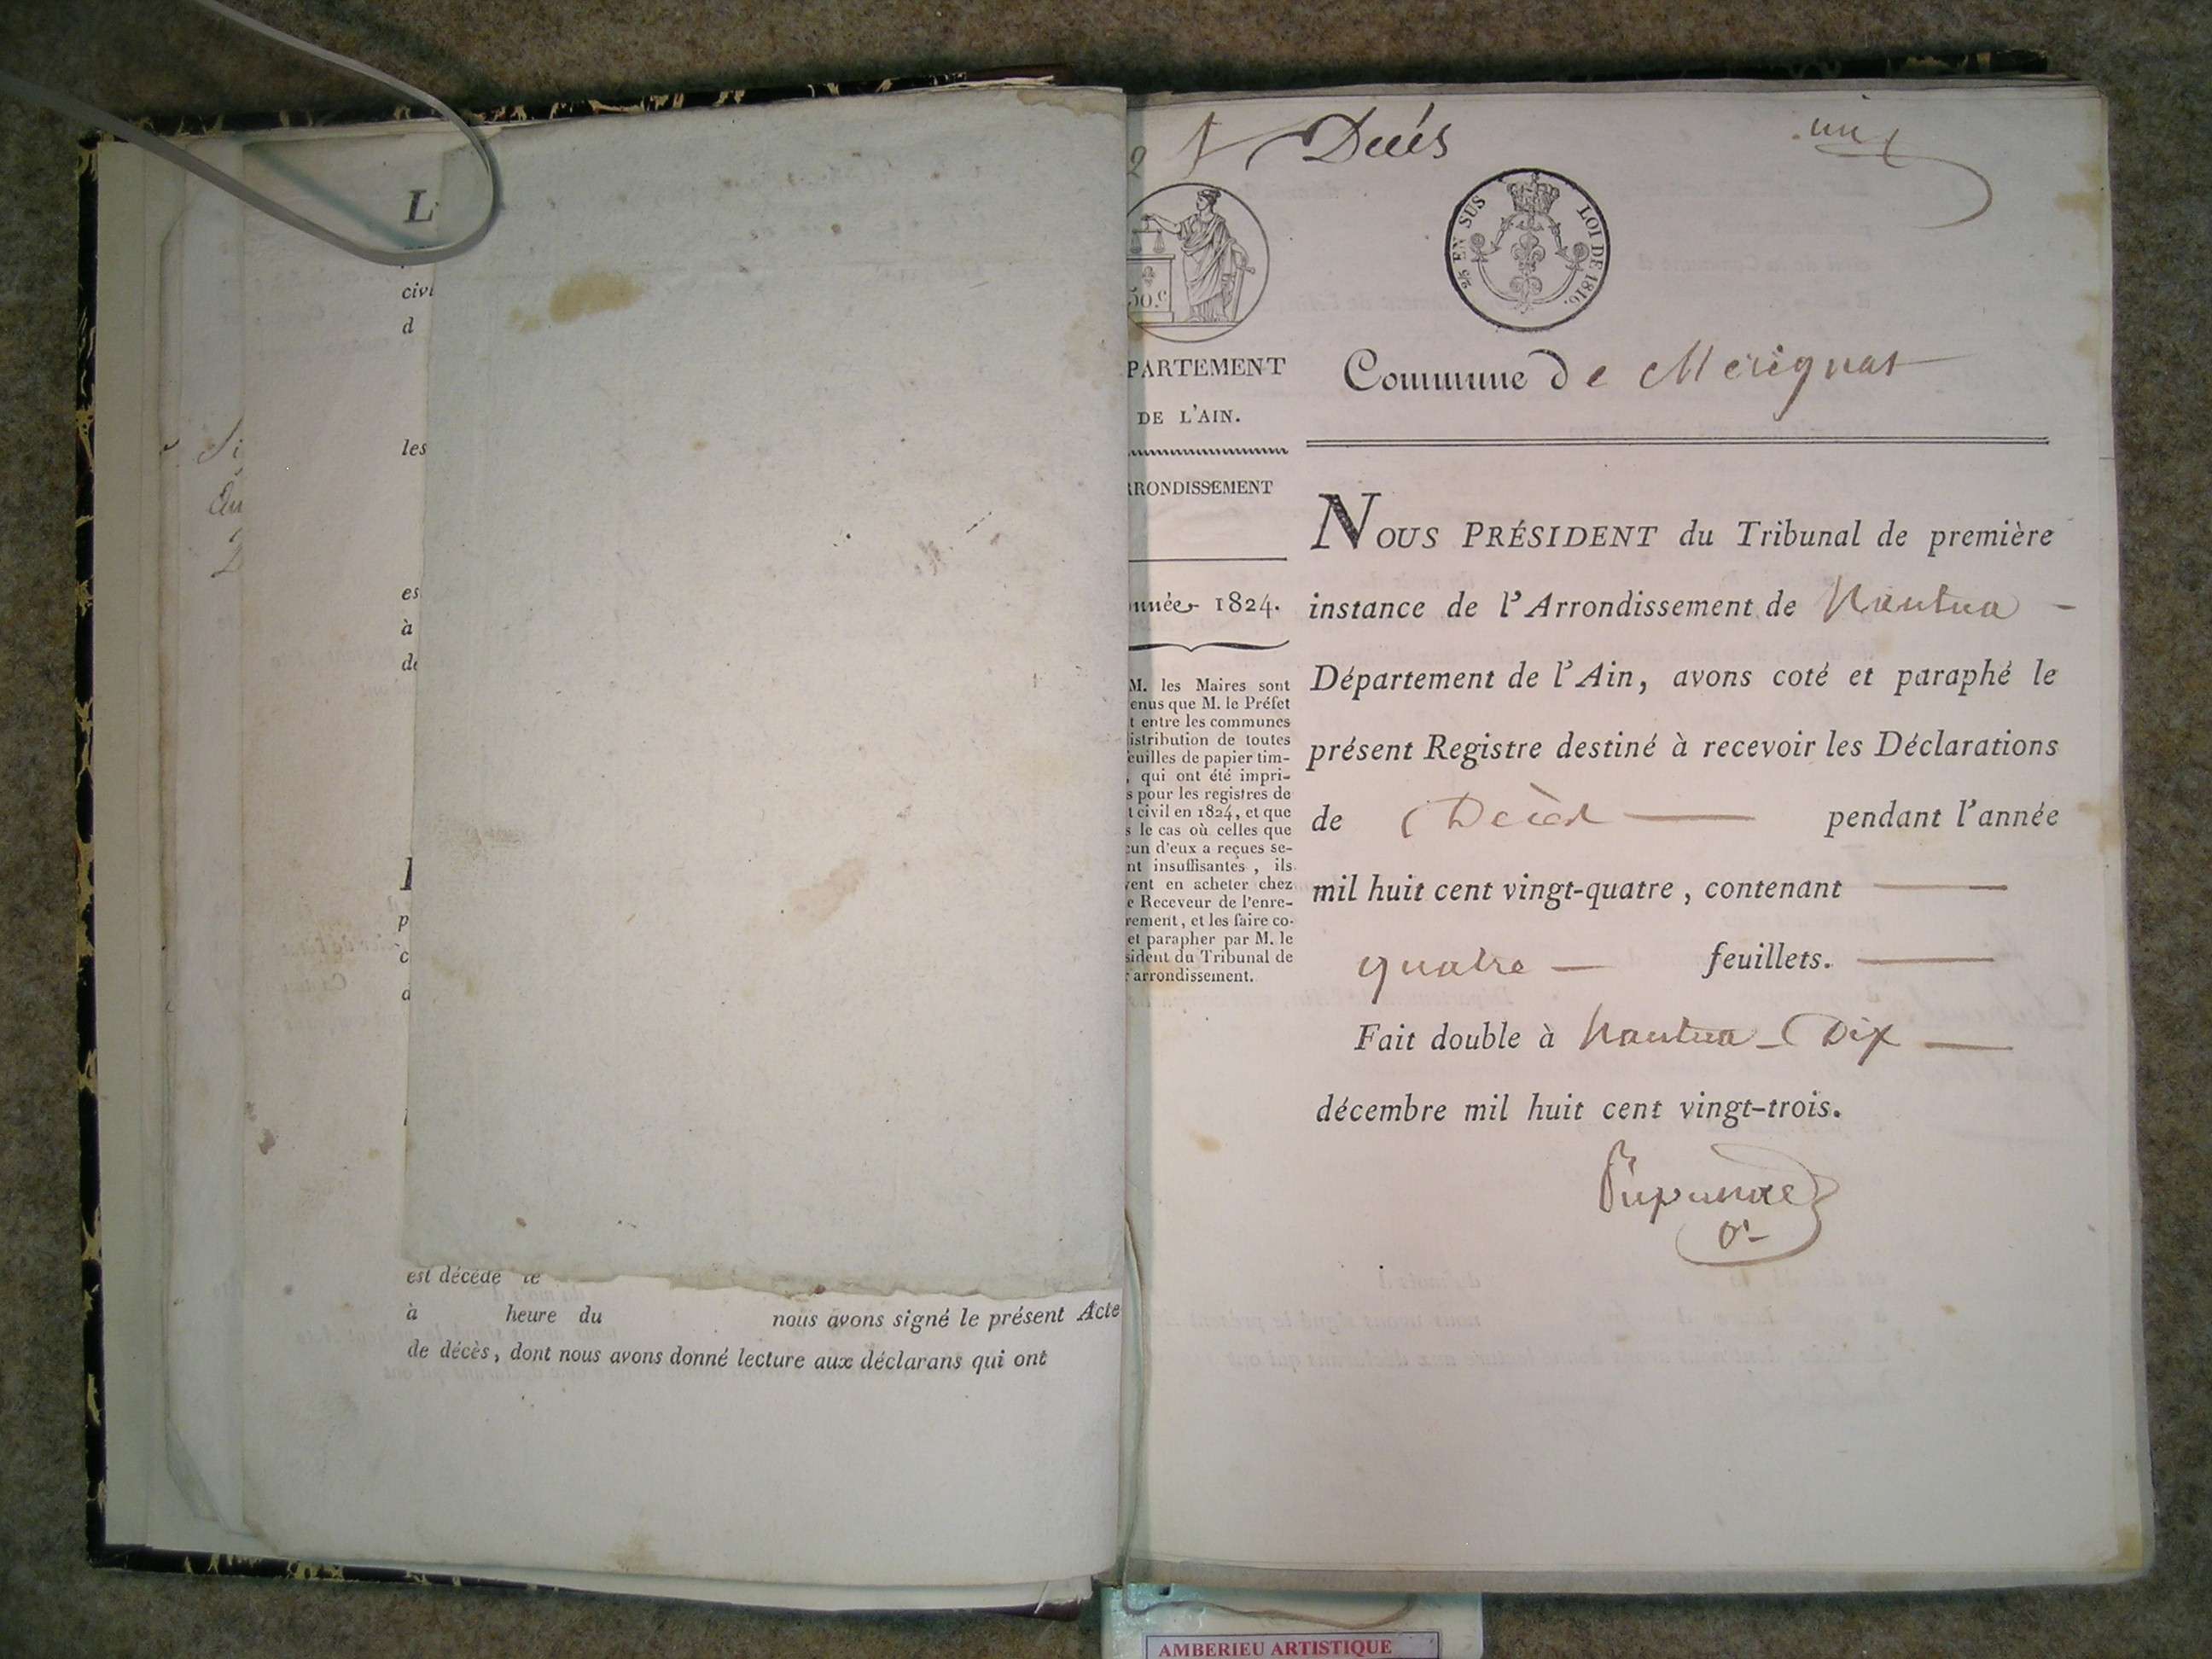 L
civi
d
les
es
à
de
p
c
d
est décédé le
à heure du nous avons signé le présent Acte
de décès, dont nous avons donné lecture aux déclarans qui ont
2 Décès
un
50.c
2/5 EN SUS LOI DE 1816.
PARTEMENT
DE L'AIN.
RRONDISSEMENT
nnée 1824.
M. les Maires sont
enus que M. le Préfet
t entre les communes
istribution de toutes
euilles de papier tim-
, qui ont été impri-
s pour les registres de
t civil en 1824, et que
s le cas où celles que
cun d'eux a reçues se-
nt insuffisantes, ils
vent en acheter chez
e Receveur de l'enre-
rement, et les faire co-
et parapher par M. le
sident du Tribunal de
r arrondissement.
Commune de Merignat
NOUS PRÉSIDENT du Tribunal de première
instance de l'Arrondissement de Nantua -
Département de l'Ain, avons coté et paraphé le
présent Registre destiné à recevoir les Déclarations
de Décès pendant l'année
mil huit cent vingt-quatre, contenant
quatre feuillets.
Fait double à Nantua Dix
décembre mil huit cent vingt-trois.
AMBERIEU ARTISTIQUE